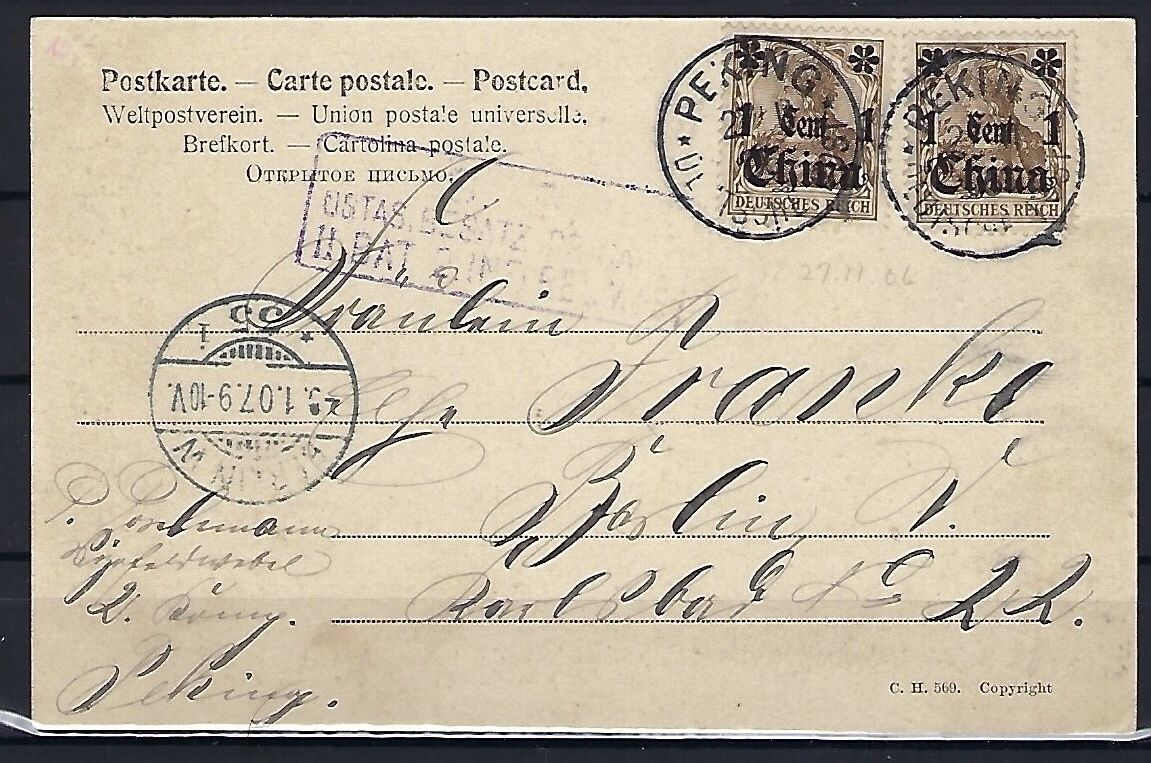 Postkarte. — Carte postale. — Postcard.
Weltpostverein. — Union postale universelle.
Brefkort. — Cartolina postale.
Открытое письмо.
PEKING
1 Cent 1
China
DEUTSCHES REICH
PEKING
1 Cent 1
China
DEUTSCHES REICH
27.11 06
OSTAS. BESATZ
II. BAT
Fräulein
Franke
Berlin W.
Karlsbad No 22.
1.07.9-10V.
BERLIN W
35
Vizefeldwebel
2. Komp.
Peking.
C. H. 569. Copyright